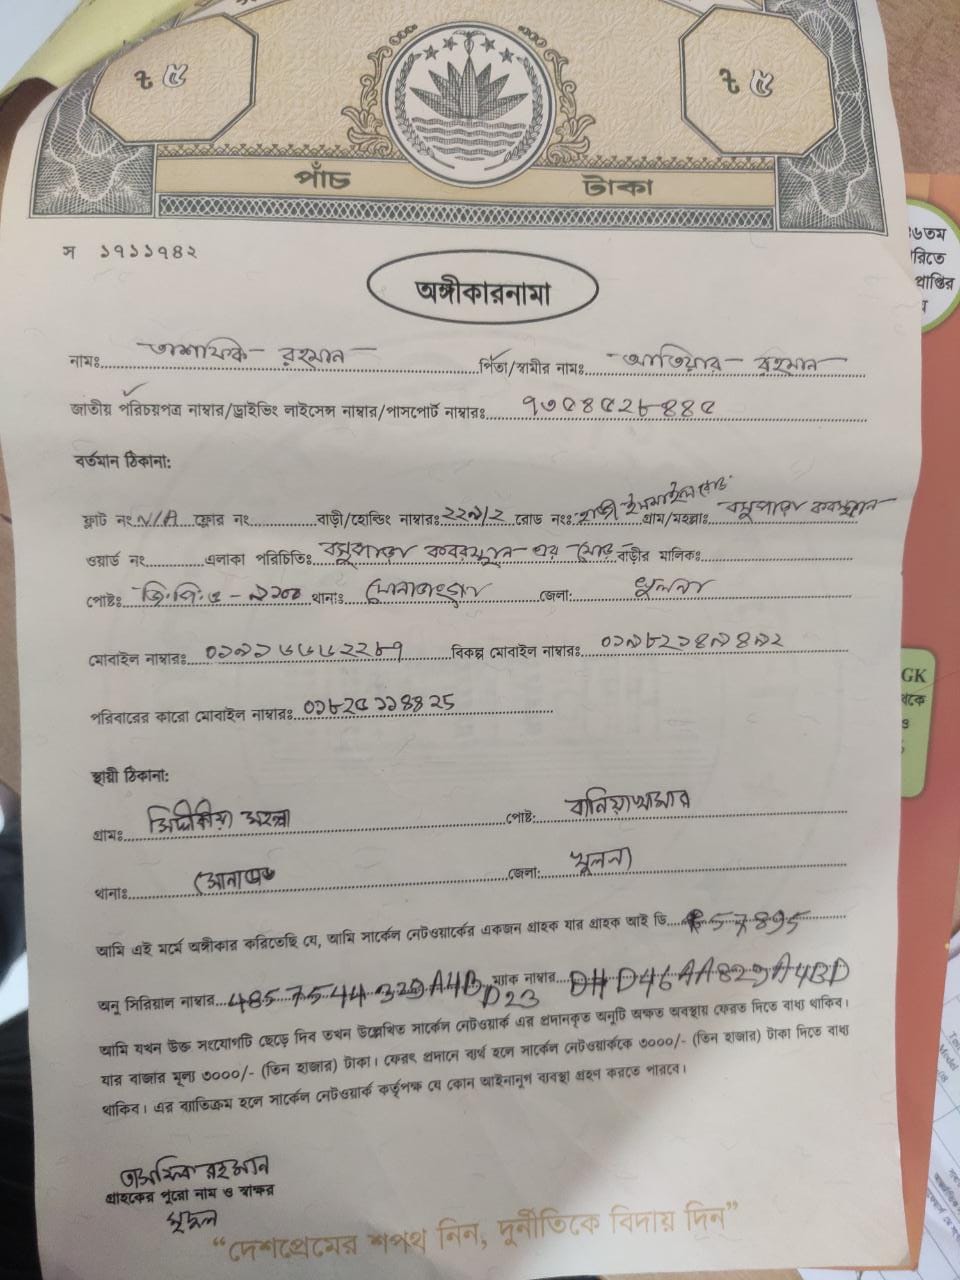 ৳ ৫ ৳ ৫
পাঁচ টাকা
স ১৭১১৭৪২
অঙ্গীকারনামা
নামঃ রহমান পিতা/স্বামীর নামঃ আতিয়ার রহমান
জাতীয় পরিচয়পত্র নাম্বার/ড্রাইভিং লাইসেন্স নাম্বার/পাসপোর্ট নাম্বারঃ ৭৩৫৪৫২৮৪৪৫
বর্তমান ঠিকানা:
ফ্লাট নং N/A ফ্লোর নং বাড়ী/হোল্ডিং নাম্বারঃ ২২৯/২ রোড নং: হাজী ইসমাইল রোড গ্রাম/মহল্লাঃ বসুপাড়া কবরস্থান
ওয়ার্ড নং এলাকা পরিচিতিঃ বসুপাড়া কবরস্থান এর মোড় বাড়ীর মালিক:
পোষ্টঃ জি.পি.ও - ৯১০০ থানাঃ সোনাডাঙ্গা জেলা: খুলনা
মোবাইল নাম্বারঃ ০১৯১৬৬৬২২৮৭ বিকল্প মোবাইল নাম্বারঃ ০১৯৮২১৪৯৪৯২
পরিবারের কারো মোবাইল নাম্বারঃ ০১৮২৫১১৪৪25
স্থায়ী ঠিকানা:
গ্রামঃ সিদ্দিকীয়া মহল্লা পোষ্ট: বানিয়াখামার
থানাঃ জেলা: খুলনা
আমি এই মর্মে অঙ্গীকার করিতেছি যে, আমি সার্কেল নেটওয়ার্কের একজন গ্রাহক যার গ্রাহক আই ডি 57895
অনু সিরিয়াল নাম্বার 48575544329A4BD ম্যাক নাম্বার
D23
আমি যখন উক্ত সংযোগটি ছেড়ে দিব তখন উল্লেখিত সার্কেল নেটওয়ার্ক এর প্রদানকৃত অনুটি অক্ষত অবস্থায় ফেরত দিতে বাধ্য থাকিব।
যার বাজার মূল্য ৩০০০/- (তিন হাজার) টাকা। ফেরৎ প্রদানে ব্যর্থ হলে সার্কেল নেটওয়ার্ককে ৩০০০/- (তিন হাজার) টাকা দিতে বাধ্য
থাকিব। এর ব্যতিক্রম হলে সার্কেল নেটওয়ার্ক কর্তৃপক্ষ যে কোন আইনানুগ ব্যবস্থা গ্রহণ করতে পারবে।
রহমান
গ্রাহকের পুরো নাম ও স্বাক্ষর
“দেশপ্রেমের শপথ নিন, দুর্নীতিকে বিদায় দিন”
GK
Model